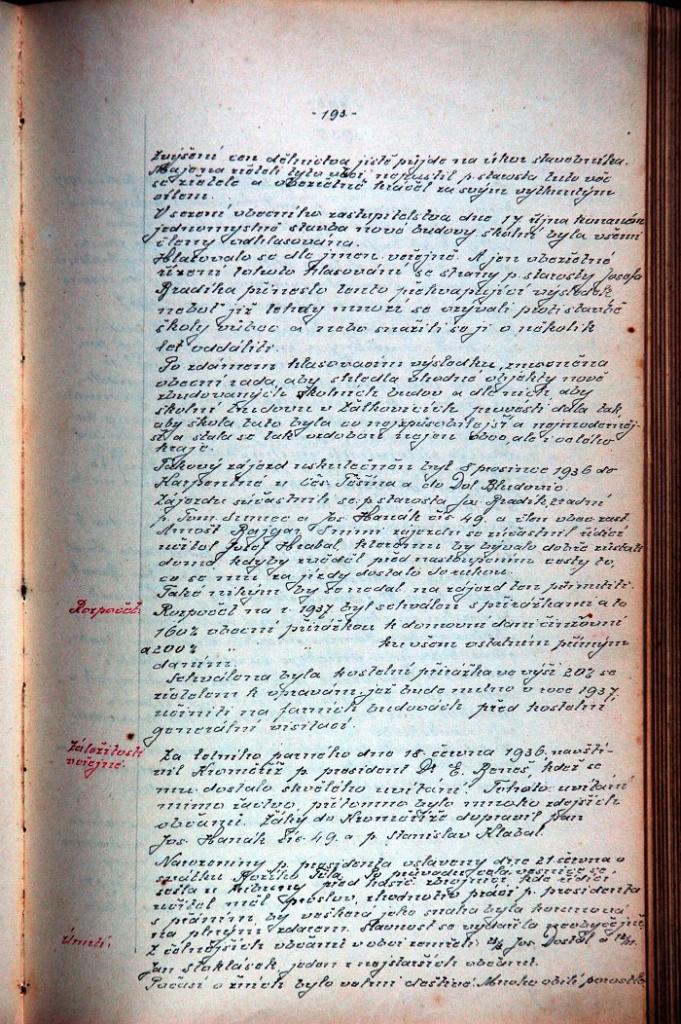 - 193. -
Zvýšení cen dělnictva jistě půjde na úkor stavebníka.
Maje na zřeteli tyto věci, nepustil p. starosta tuto věc
se zřetele a obezřetně kráčel za svým vytknutým
cílem.
V sezení obecního zastupitelstva dne 17 října konaném
jednomyslně stavba nové budovy školní byla všemi
členy odhlasována.
Hlasovalo se dle jmen veřejně. A jen obezřetné
řízení tohoto hlasování se strany p. starosty Josefa
Bradíka přineslo tento překvapující výsledek
neboť již tehdy mnozí se ozývali proti stavbě
školy vůbec a nebo snažili se ji o několik
let oddáliti.
Po zdárném hlasovacím výsledku, zmocněna
obecní rada, aby shledla vhodné objekty nově
zbudovaných školních budov a dle nich, aby
školní budovu v Žalkovicích provésti dala tak,
aby škola tato byla co nejzpůsobilejší a nejmoderněj-
ší a stala se tak ozdobou nejen obce, ale i celého
kraje.
Takový zájezd uskutečněn byl 5 prosince 1936 do
Karpentné u Čes. Těšína a do Dol. Bludovic.
Zájezdu súčastnili se p. starosta Jos. Bradík, radní
p. Tom. a Jos. Hanák čís 49. a člen obec. zast.
Bajgar. Mimo zájezdu se zúčastnil řídící
učitel Josef Hrabal, kterému by bývalo dobře zůstati
doma, kdyby věděl před nastoupením cesty to,
co se mu za jízdy dostalo do rukou.
Také nikým by se nedal na zájezd ten přinutiti.
Rozpočet: Rozpočet na r. 1937 byl schválen s přirážkami a to
160% obecní přirážkou k domovní dani činžovní
a 200% " " ku všem ostatním přímým
daním.
Schválena byla kostelní přirážka ve výši 20% se
zřetelem k opravám, jež bude nutno v roce 1937
učiniti na farních budovách před kostelní
generální visitací.
Záležitosti veřejné: Za letního parného dne 18. června 1936. navští-
vil Kroměříž p. president Dr. E. Beneš, kdež se
mu dostalo skvělého uvítání. Tohoto uvítání
mimo žactvo, přítomno bylo mnoho zdejších
občanů. Žáky do Kroměříže dopravil pan
Jos. Hanák čís. 49. a p. Stanislav Klabal.
Narozeniny p. presidenta oslaveny dne 21 června o
svátku Božího Těla. Po průvodu celá vesnice se
sešla u tribuny před hasič. zbrojnicí kde řídící
učitel měl proslov, zhodnotiv práci p. presidenta
s přáním, by veškerá jeho snaha byla korunová-
na plným zdarem. Slavnost se vydařila neobyčejně.
Úmrtí: Z čelnějších občanů v obci zemřeli: Jos. Dostál a
Jan Stoklásek, jeden z nejstarších občanů.
Počasí o žních bylo velmi deštivé. Mnoho obilí porostlo